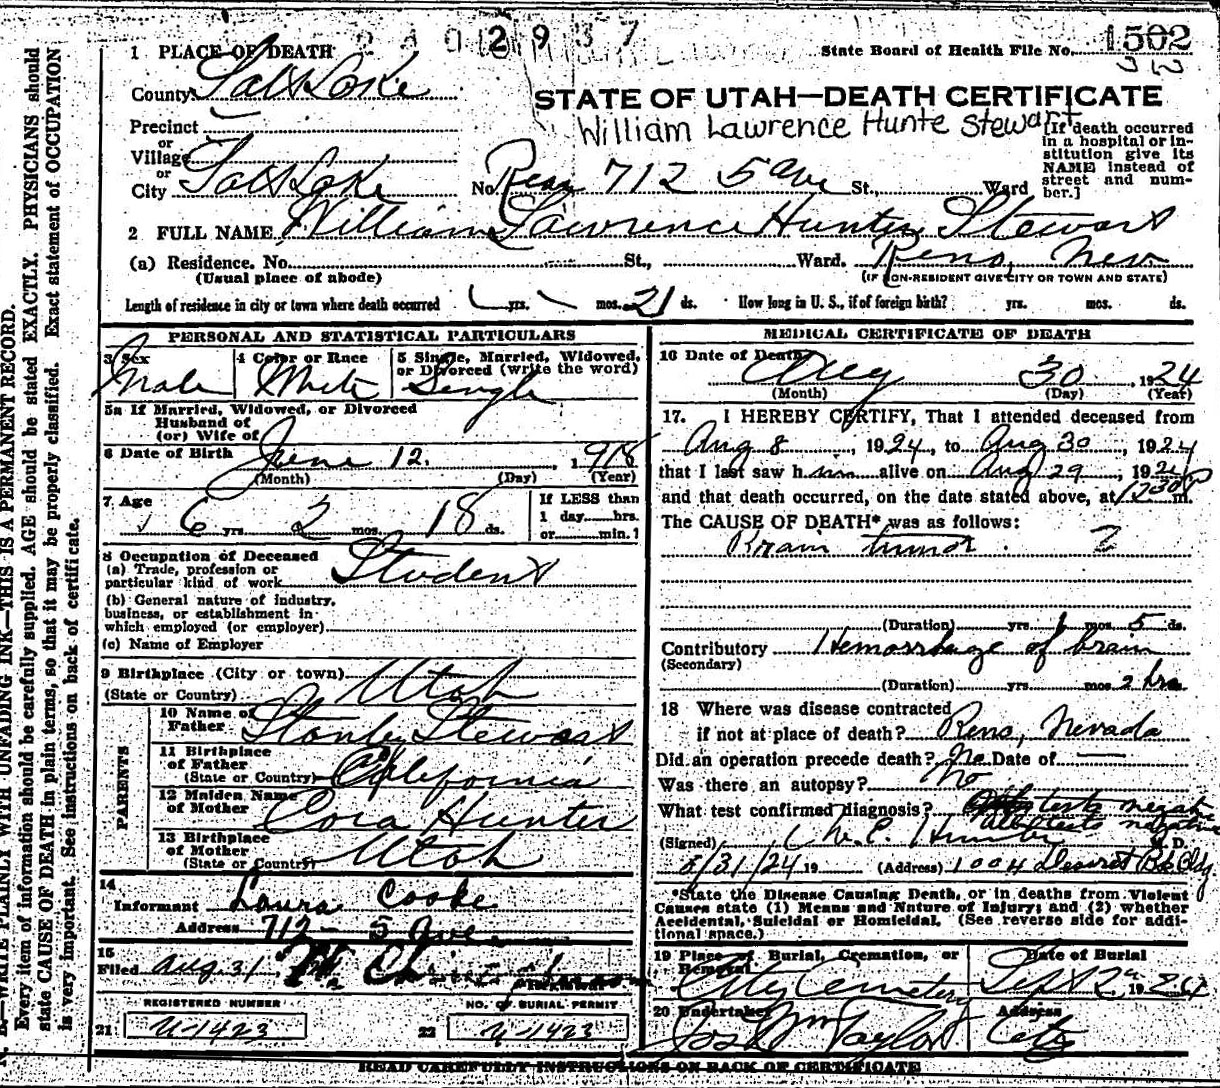 2 9 3 7
1 PLACE OF DEATH
State Board of Health File No. 1502
County Salt Lake
STATE OF UTAH—DEATH CERTIFICATE
William Lawrence Hunte Stewart
Precinct
or
Village
or
City Salt Lake No. 712 5 ave St., Ward
[If death occurred
in a hospital or in-
stitution give its
NAME instead of
street and num-
ber.]
2 FULL NAME William Lawrence Hunter Stewart
(a) Residence. No. St., Ward. Reno, Nev
(Usual place of abode) (IF NON-RESIDENT GIVE CITY OR TOWN AND STATE)
Length of residence in city or town where death occurred yrs. mos. 21 ds. How long in U. S., if of foreign birth? yrs. mos. ds.
PERSONAL AND STATISTICAL PARTICULARS
3 Sex 4 Color or Race 5 Single, Married, Widowed,
or Divorced (write the word)
Male White Single
5a If Married, Widowed, or Divorced
Husband of
(or) Wife of
6 Date of Birth June 12, 1918
(Month) (Day) (Year)
7 Age 6 yrs. 2 mos. 18 ds.
If LESS than
1 day hrs.
or min.?
8 Occupation of Deceased
(a) Trade, profession or
particular kind of work Student
(b) General nature of industry,
business, or establishment in
which employed (or employer)
(c) Name of Employer
9 Birthplace (City or town)
(State or Country) Utah
PARENTS
10 Name of
Father Stanley Stewart
11 Birthplace
of Father
(State or Country) California
12 Maiden Name
of Mother Cora Hunter
13 Birthplace
of Mother
(State or Country) Utah
14
Informant Laura Cooke
Address 712 - 5 Ave
15
Filed Aug 31
REGISTERED NUMBER NO. OF BURIAL PERMIT
21 U-1423 22 U-1423
MEDICAL CERTIFICATE OF DEATH
16 Date of Death
Aug 30, 1924
(Month) (Day) (Year)
17. I HEREBY CERTIFY, That I attended deceased from
Aug 8, 1924, to Aug 30, 1924
that I last saw him alive on Aug 29, 1924
and that death occurred, on the date stated above, at 1230 P m.
The CAUSE OF DEATH* was as follows:
Brain tumor. ?
(Duration) yrs. mos. 5 ds.
Contributory Hemorrhage of brain
(Secondary)
(Duration) yrs. mos. 2 hrs
18 Where was disease contracted
if not at place of death? Reno, Nevada
Did an operation precede death? No Date of
Was there an autopsy? No
What test confirmed diagnosis? tests negative
All tests negative
(Signed) M. D.
8/31/24 19 (Address) 1004 Deseret Bk Bldg
*State the Disease Causing Death, or in deaths from Violent
Causes state (1) Means and Nature of Injury; and (2) whether
Accidental, Suicidal or Homicidal. (See reverse side for addi-
tional space.)
19 Place of Burial, Cremation, or
Removal Date of Burial
City Cemetery Sept 2 1924
20 Undertaker Address
Jos Wm Taylor City
READ CAREFULLY INSTRUCTIONS ON BACK OF CERTIFICATE
N. B.—WRITE PLAINLY WITH UNFADING INK—THIS IS A PERMANENT RECORD.
Every item of information should be carefully supplied. AGE should be stated EXACTLY. PHYSICIANS should
state CAUSE OF DEATH in plain terms, so that it may be properly classified. Exact statement of OCCUPATON
is very important. See instructions on back of certificate.